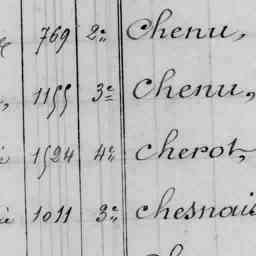 769 2e Chenu,
1155 3e Chenu,
1524 4e Cherot,
1011 3e Chesnais